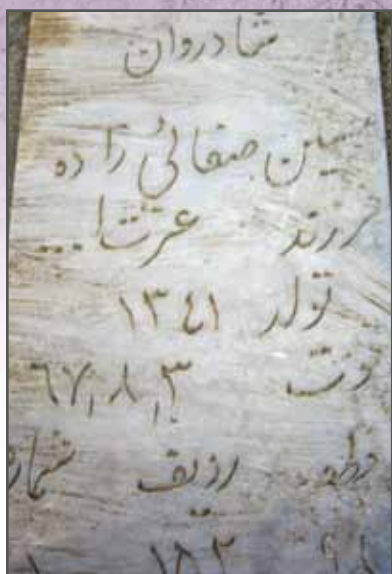 شادروان
حسین صفائی زاده
فرزند عزت ا...
تولد ۱۳٤۱
فوت ٦۷٫۸٫۳
قطعه ردیف شماره
۱۸۲